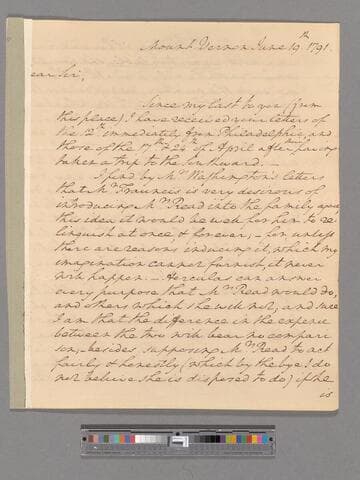 Mount Vernon June 19th 1791.
ear Sir,
Since my last to you (from
this place) I have received your letters of
the 12th immediately from Philadelphia, and
those of the 17th & 23d of April after having
taken a trip to the Southward.—
I find by Mrs Washington's letters
that Mr Fraunces is very desirous of
introducing Mrs Read into the family again
this idea it would be well for her to re
linquish at once & forever,— for unless
there are reasons inducing it, which my
imagination cannot furnish, it never
will happen.— Hercules can answer
every purpose that Mrs Read would do,
and others, which she will not; and sure
I am that the difference in the expence
between the two will bear no compari
son,— besides supposing Mrs Read to act
fairly & honestly (which by the bye I do
not believe she is disposed to do) if she
is